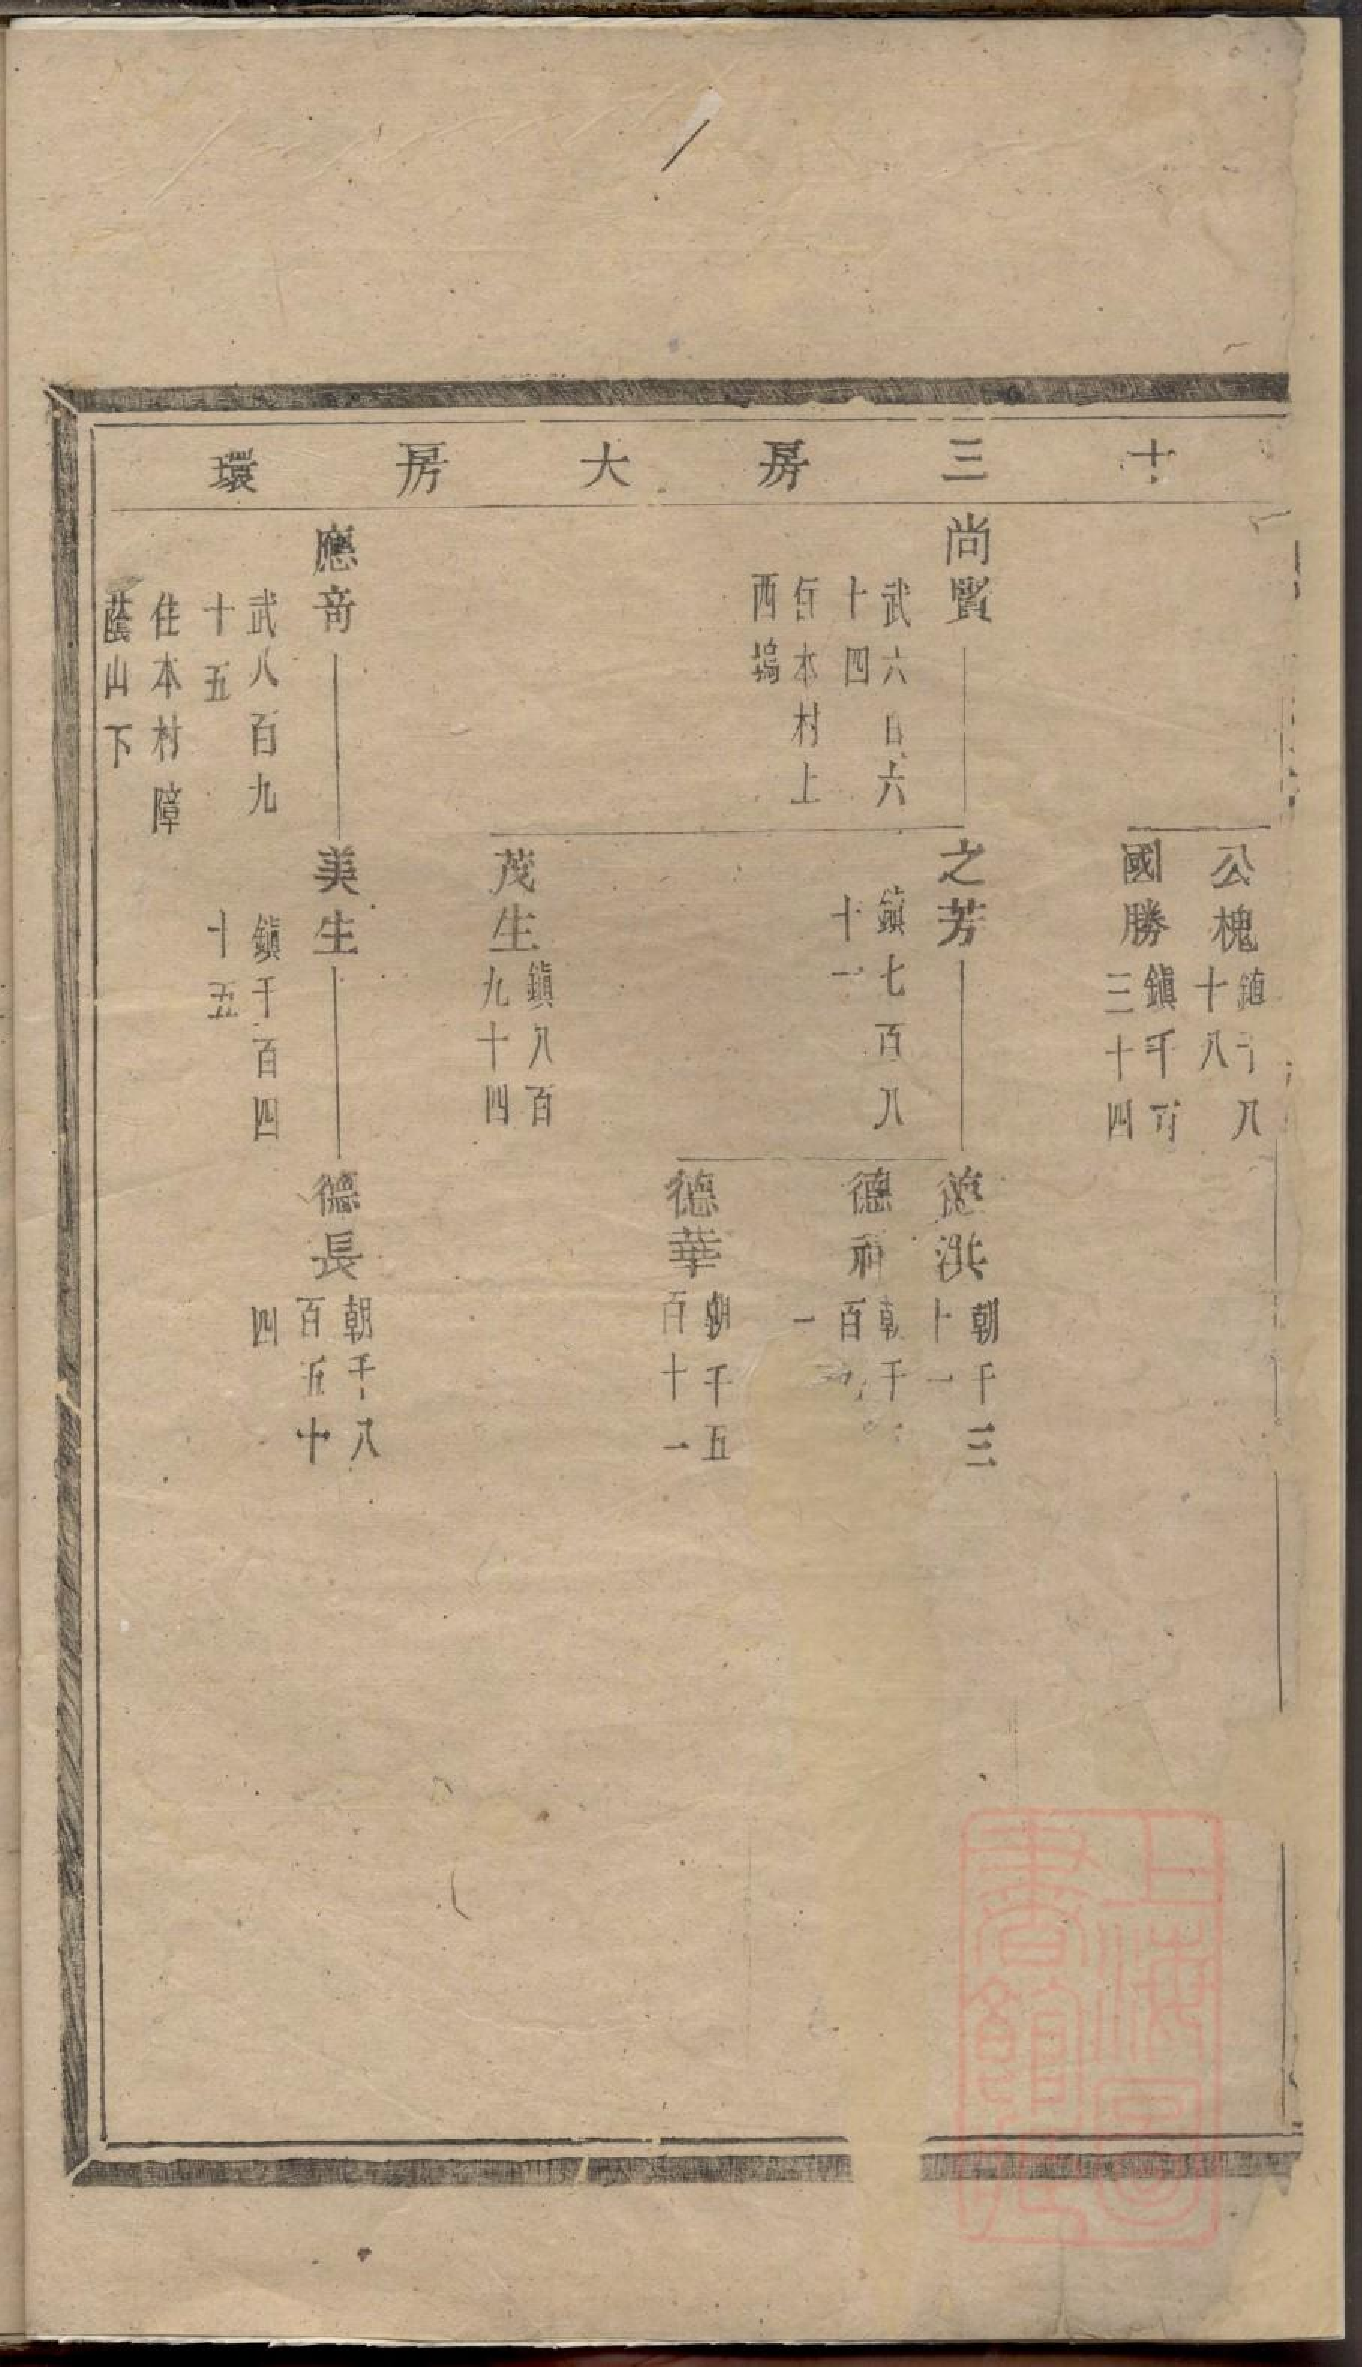 十三房大房環
公槐
十八
國勝
鎭千百
三十四
尚賢
武六百六
十四
住本村上
西塢
之芳
鎭七百八
十一
德洪
朝千三
十一
德
朝千
百
一
德華
朝千五
百十一
茂生
鎭八百
九十四
應奇
武八百九
十五
住本村障
蔭山下
美生
鎭千百四
十五
德長
朝千八
百五十
四
上海圖
書館藏